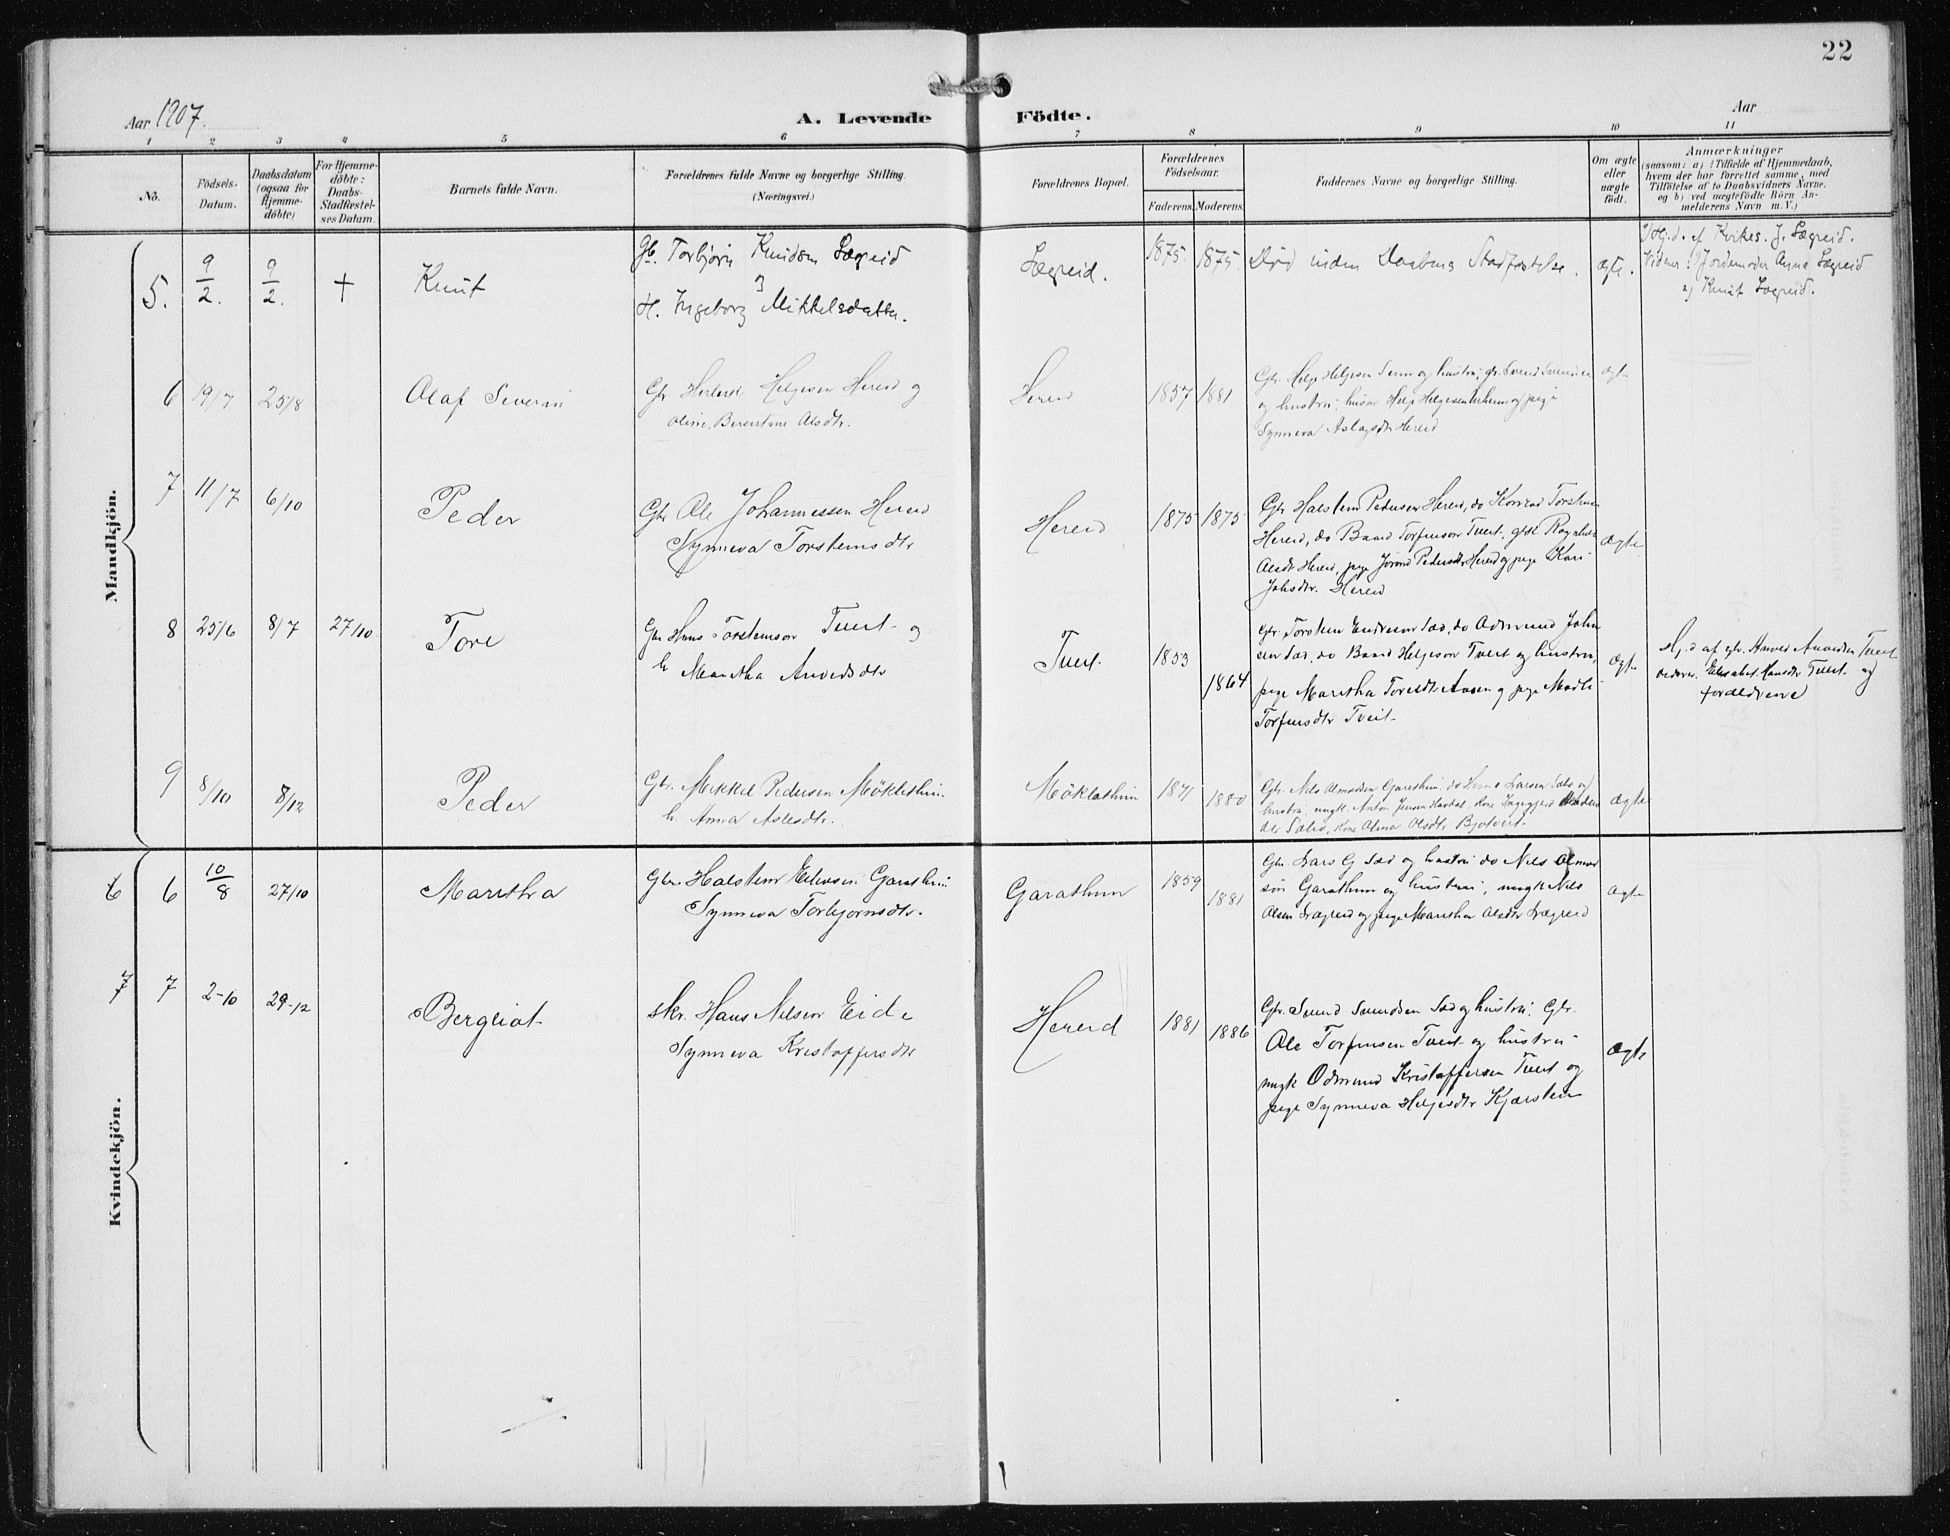 22
Aar 1907.
A. Levende Födte.
Aar
1 2 3 4 5 6 7 8 9 10 11
No.
Födsels-
Datum.
Daabsdatum
(ogsaa for
Hjemme-
döbte)
For Hjemme-
döbte:
Daabs-
Stadfæstel-
ses Datum.
Barnets fulde Navn.
Forældrenes fulde Navne og borgerlige Stilling.
(Næringsvei.)
Forældrenes Bopæl.
Forældrenes
Födselsaar.
Faderens Moderens
Faddernes Navne og borgerlige Stilling.
Om ægte
eller
uægte
födt.
Anmærkninger
(saasom: a) i Tilfælde af Hjemmedaab,
hvem der har forrettet samme, med
Tilföielse af to Daabsvidners Navne.
og b) ved uægtefödte Börn An-
melderens Navn m. V.)
Mandkjön.
5. 9/2. 9/2. + Knut
Gb. Torbjörn Knudsen Lægreid
H. Ingeborg Mikkelsdatter.
Lægreid. 1875. 1875.
Död inden Daabens Stadfæstelse.
ægte.
af Kvikes. J. Lægreid.
Vidner: Jordemoder Anna Lægreid
og Knut Lægreid.
6 19/7 25/8 Olaf Severin
Gbr Herleik Helgesen Hereid og
Oline Berentine Olsdtr.
Hereid 1857 1881
Gbr. Helge Helgesen og hustru, gbr. Svend Svendsen
og hustru, Helge Helgesen og pige
Synneva Aslagsdtr Hereid
ægte
7 11/7 6/10 Peder
Gbr Ole Johannessen Hereid
Synneva Torsteinsdtr
Hereid 1875 1875
Gbr Halstein Pedersen Hereid, do Konrad Torstens
Hereid, do Baard Torfinson Tveit, Ragnhild
Olsdt Hereid, pige Pedersdtr Hereid og pige Kari
Johsdtr. Hereid
ægte
8 25/6 8/7 27/10 Tore
Gbr Hans Torsteinson Tveit og
h Maritha Anvedsdtr
Tveit. 1853 1864
Gbr. Torstein Endreson Sæd, do Odmund Johan
sen Sæd, do Baard Helgeson Tveit og hustru,
pige Maritha Toresdtr Aasen og pige Madli
Torfinsdtr Tveit
ægte
H, d af gbr. Anved Anvedsen Tveit
Elisabet Hansdtr Tveit og
forældrene
9 8/10 8/12 Peder
Gbr. Mikkel Pedersen Möklethun
h Anna Aslesdtr.
Möklethun 1871 1880
Gbr. Nils Olmodsen Garathun, do Larsen Sæbö og
hustru, ungk. Anton Jensen, Kone Ingegjerd
Sæbö, Kone Olina Olsdtr Bjotveit
ægte
Kvindekjön.
6 6 10/8 27/10 Maritha
Gbr. Halstein Garathun
Synneva Torbjornsdtr.
Garathun 1859 1881
Gbr Lars G Sæd og hustru do Nils Olmod
sön Garathun og hustru, ungk Nils
Olsen Lægreid og pige Maritha Olsdtr Lægreid
ægte
7 7 2-10 29-12 Bergliot
skr. Hans Nilsen Eide
Synneva Kristoffersdtr
Hereid 1881 1886
Gbr. Svend Svendsen Sæd og hustru, Gbr.
Ole Torfinsen Tveit og hustru
ungk Odmund Kristoffersen Tveit og
pige Synneva Helgesdtr Kjærstein
ægte